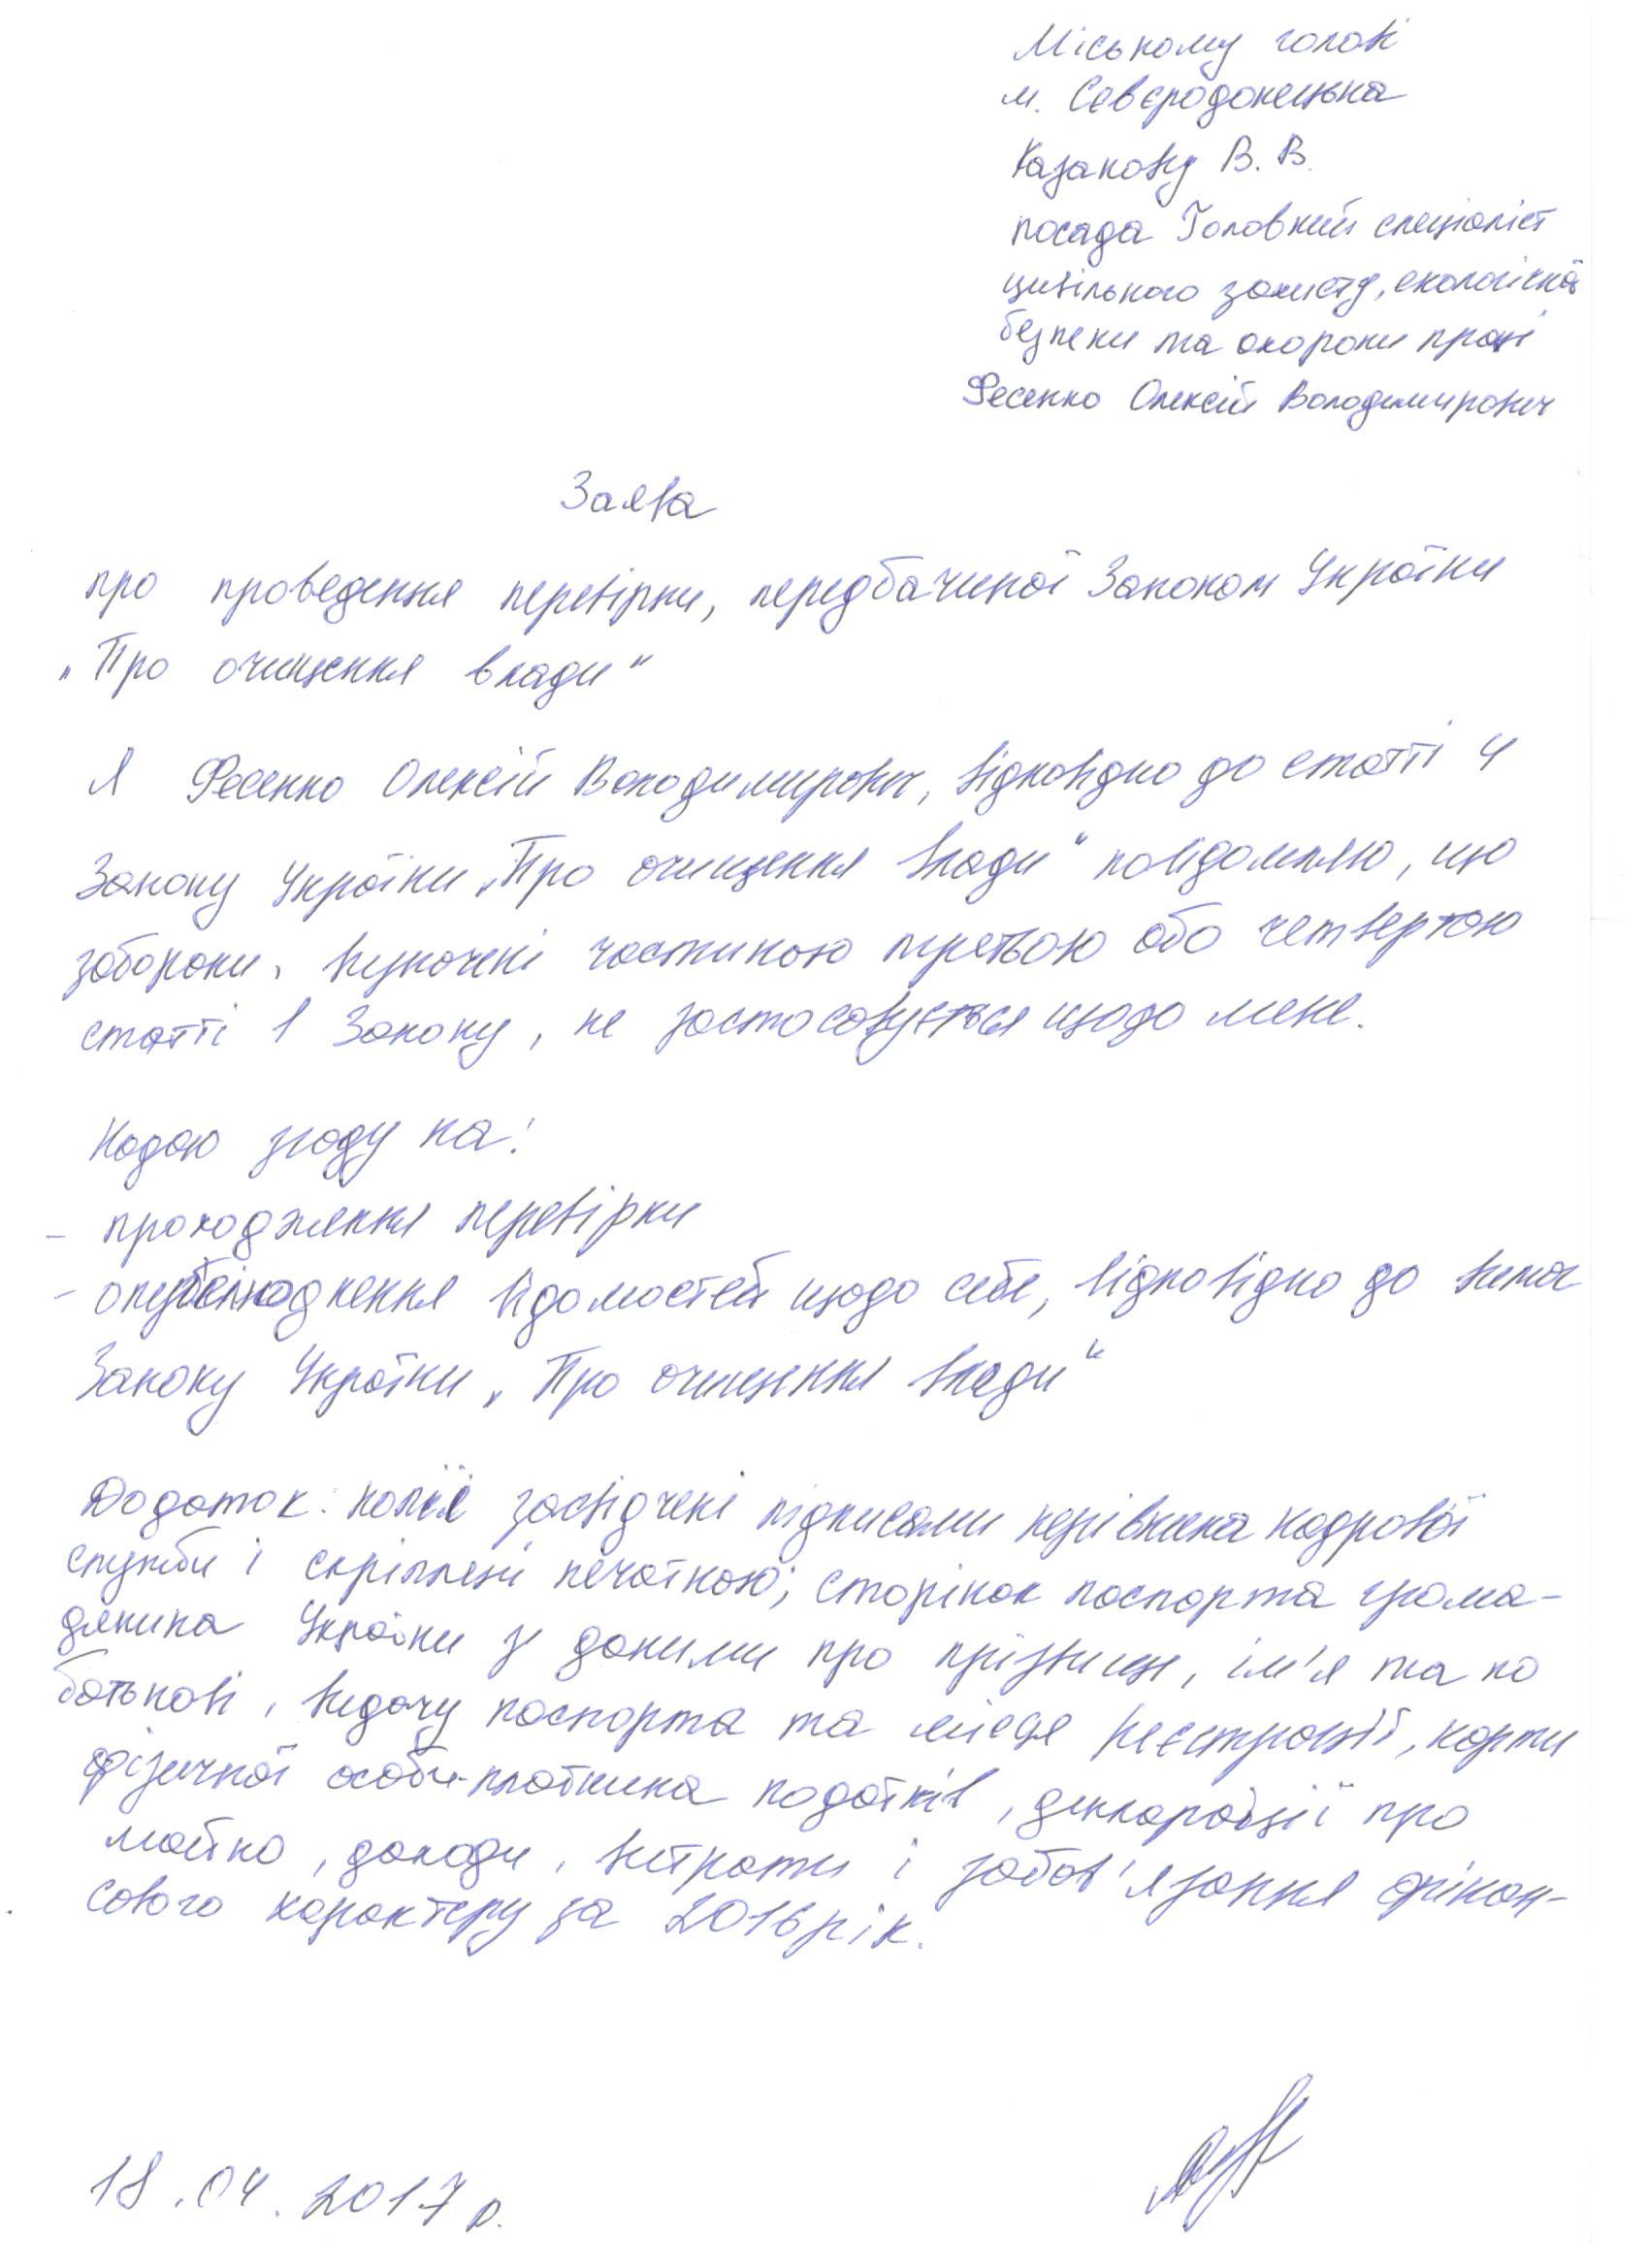 Міському голові
м. Сєвєродонецька
Казакову В. В.
посада Головний спеціаліст
цивільного захисту, екологічної
безпеки та охорони праці
Фесенко Олексій Володимирович
Заява
про проведення перевірки, передбаченої Законом України
„Про очищення влади"
Я Фесенко Олексій Володимирович, відповідно до статті 4
Закону України „Про очищення влади" повідомляю, що
заборони, визначені частиною третьою або четвертою
статті 1 Закону, не застосовується щодо мене.
Надаю згоду на:
- проходження перевірки
- оприлюднення відомостей щодо себе, відповідно до вимог
Закону України „Про очищення влади"
Додаток: копії засвідчені підписами керівника кадрової
служби і скріплені печаткою; сторінок паспорта грома-
дянина України з даними про прізвище, ім'я та по
батькові, видачу паспорта та місце реєстрації, карти
фізичної особи-платника податків, декларації про
майно, доходи, витрати і зобов'язання фінан-
сового характеру за 2016 рік.
18.04.2017 р.